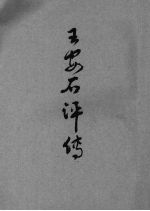 王安石评传